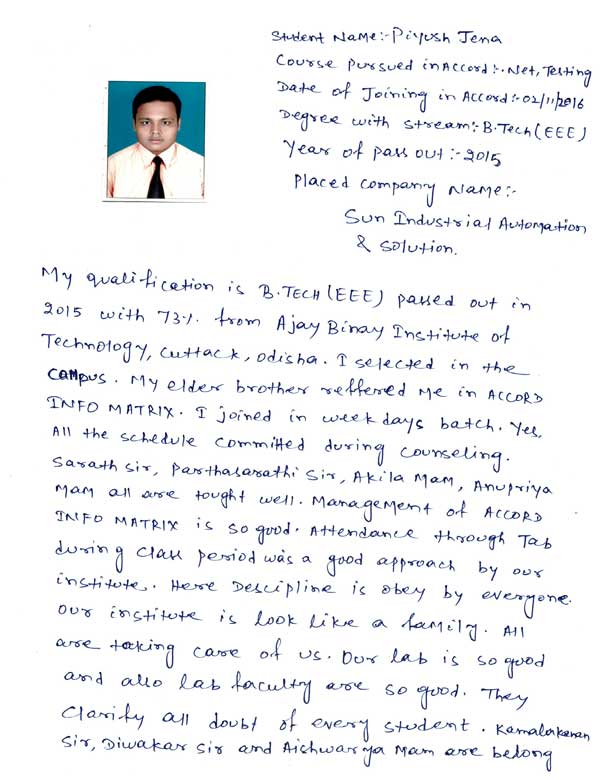 Student Name:- Piyush Jena
Course Pursued in Accord:- .Net, Testing
Date of Joining in Accord:- 02/11/2016
Degree with stream:- B.Tech (EEE)
Year of pass out:- 2015
Placed company Name:-
Sun Industrial Automation
& solution.
My qualification is B.TECH (EEE) passed out in
2015 with 73%. from Ajay Binay Institute of
Technology, Cuttack, odisha. I selected in the
campus. My elder brother reffered me in ACCORD
INFO MATRIX. I joined in week days batch. Yes,
All the schedule committed during counseling.
Sarath sir, Parthasarathi Sir, Akila Mam, Anupriya
Mam all are tought well. Management of ACCORD
INFO MATRIX is so good. Attendance through Tab
during class period was a good approach by our
institute. Here Descipline is obey by everyone.
Our institute is look like a family. All
are taking care of us. Our lab is so good
and also lab faculty are so good. They
Clarify all doubt of every student. Kamalakanan
Sir, Diwakar sir and Aishwarya Mam are belong